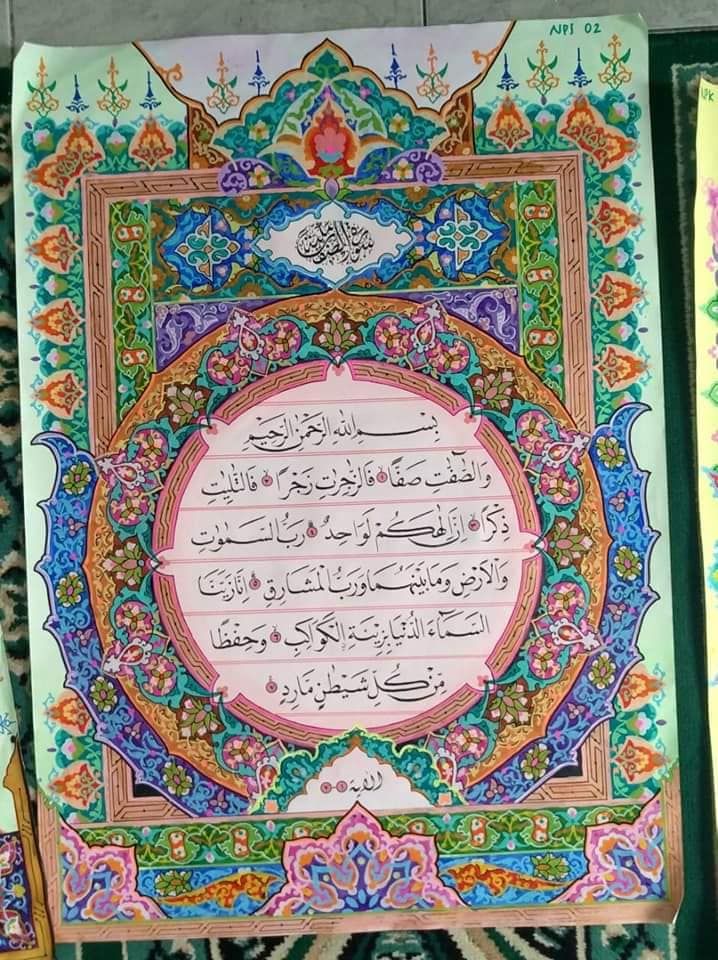 NPS 02
سورة الصافات
بِسْمِ اللهِ الرَّحْمٰنِ الرَّحِيْمِ
وَالصّٰٓفّٰتِ صَفًّا ١ فَالزّٰجِرٰتِ زَجْرًا ٢ فَالتّٰلِيٰتِ
ذِكْرًا ٣ اِنَّ اِلٰهَكُمْ لَوَاحِدٌ ٤ رَبُّ السَّمٰوٰتِ
وَالْاَرْضِ وَمَا بَيْنَهُمَا وَرَبُّ الْمَشَارِقِ ٥ اِنَّا زَيَّنَّا
السَّمَآءَ الدُّنْيَا بِزِيْنَةِ ۨالْكَوَاكِبِ ٦ وَحِفْظًا
مِّنْ كُلِّ شَيْطٰنٍ مَّارِدٍ ٧
الاية ١-٧